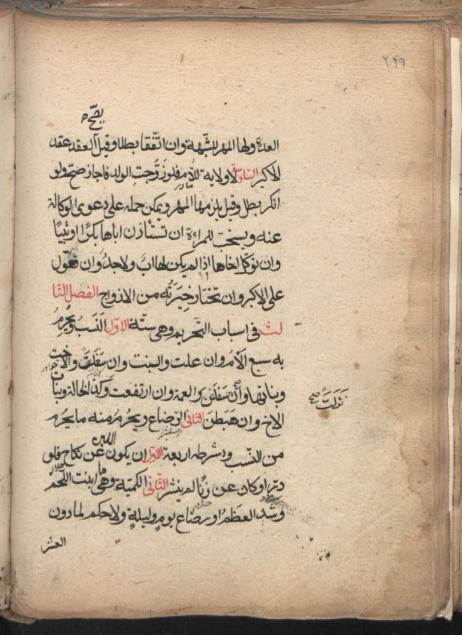 ۲۴۹
يصح
العدة ولها المهر للشبهة وان اتفقا بطلا وقيل العقد عقد
للاكبر السادسة لا ولاية للام فلو زوجت الولد فاجاز صح ولو
انكر بطل وقيل يلزمها المهر ويمكن حمله على دعوى الوكالة
عنه ويستحب للمراة ان تستاذن اباها بكرا او ثيبا
وان توكل اخاها اذا لم يكن لها اب ولا جد وان تعول
على الاكبر وان تختار خيرته من الازواج الفصل الثا
لث في اسباب التحريم وهي ستة الاول النسب ويحرم
به سبع الام وان علت والبنت وان سفلت والاخت
وبناتها وان سفلن والعمة وان ارتفعت وكذا الخالة وبنات
الاخ وان هبطن الثاني الرضاع ويحرم منه ما يحرم
نزلت صح
من النسب وشرطه اربعة الاول ان يكون اللبن عن نكاح فلو
در او كان عن زنا لم ينشر الثاني الكمية وهي ما ينبت اللحم
وشد العظم او رضاع يوم وليلة ولا حكم لما دون
العشر